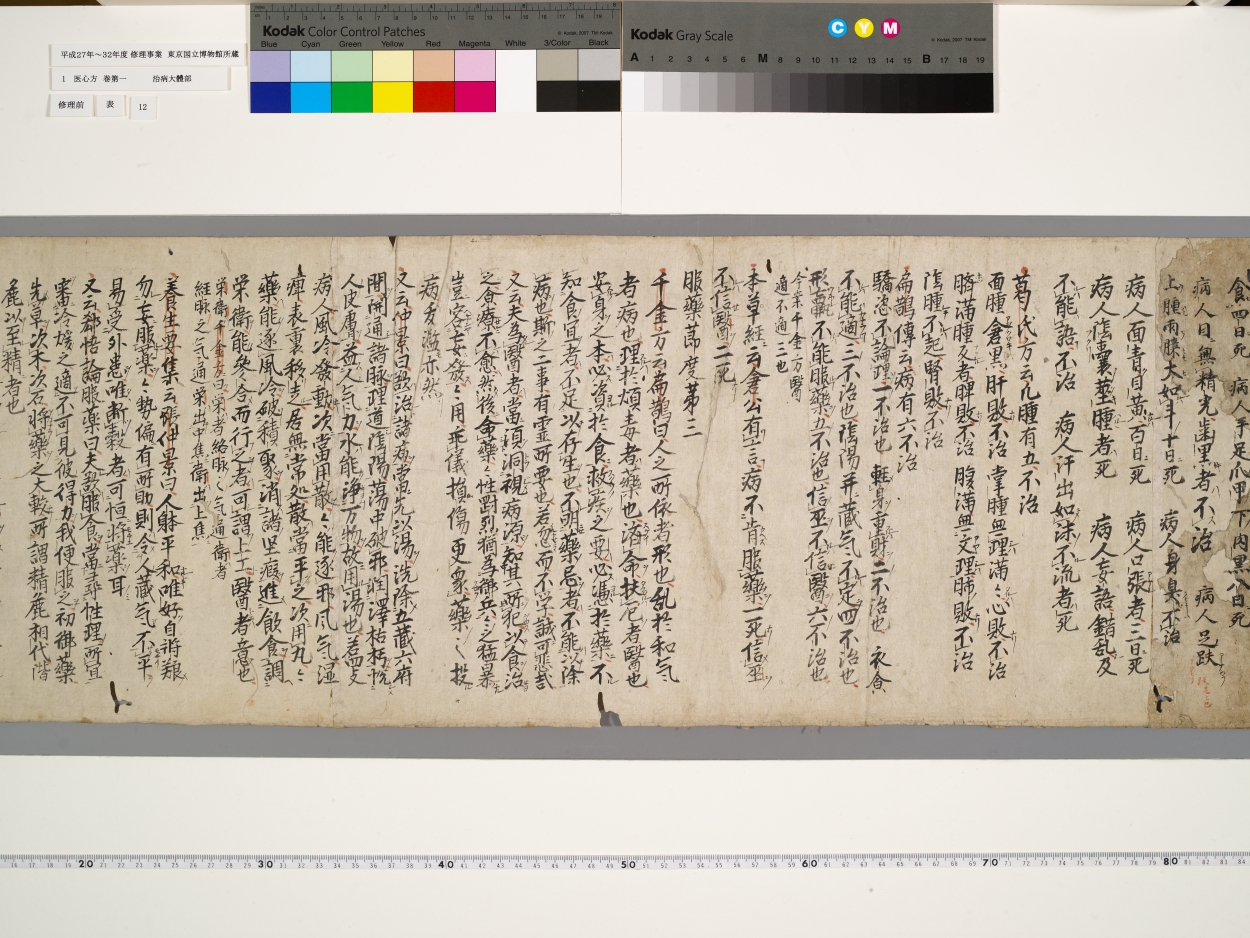 平成27年～32年度 修理事業 東京国立博物館所蔵
1 医心方 巻第一 治病大體部
修理前 表 12
Kodak Color Control Patches
© Kodak, 2007 TM: Kodak
Blue Cyan Green Yellow Red Magenta White 3/Color Black
Kodak Gray Scale
C Y M
© Kodak, 2007 TM: Kodak
A 1 2 3 4 5 6 M 8 9 10 11 12 13 14 15 B 17 18 19
食四日死 病人手足爪甲下肉黒八日死
病人目無精光歯黒者不治 病人足趺
上腫兩膝大如斗十日死 病人身臭不治
病人面青目黄五百日死 病人口張者三日死
病人陰囊茎腫者死 病人妄語錯乱及
不能語不治 病人汗出如沫不流者死
葛氏方云凡腫有五不治
面腫倉黒肝敗不治 掌腫無理滿々心敗不治
臍滿腫反者脾敗不治 腹滿無文理肺敗不治
陰腫不起腎敗不治
扁鵲傳云病有六不治
驕恣不論理一不治也 輕身重財二不治也 衣食
不能適三不治也 陰陽并藏气不定四不治也
形羸不能服藥五不治也 信巫不信醫六不治也
今案千金方醫
適不適二也
本草經云倉公有言病不肯服藥一死信巫
不信醫二死
服藥莭度苐三
千金方云扁鵲曰人之所依者形也乱於和气
者病也理於煩毒者藥也濟命扶厄者醫也
安身之本必資於食救疾之要必憑於藥不
知食宜者不足以存生也不明藥忌者不能以除
病也斯之二事有靈所要也若忽而不学誠可悲哉
又云夫為醫者當須洞視病源知其所犯以食治
之食療不愈然後命藥々性剛烈猶為御兵々之猛暴
豈容妄發々用乖儀損傷更衆藥々投
病夭濫亦然
又云仲景曰欲治諸病當先以湯洗除五藏六府
開通諸脉理道陰陽蕩中破邪潤澤枯朽悦
人皮膚益人气力水能淨万物故用湯也若四支
病久風冷發動次當用散々能逐邪風气湿
痺表裏移走居無常処散當平之次用丸々
藥能逐風冷破積聚消諸坚癥進飲食調
榮衛能參合而行之者可謂上工醫者意也
榮衛千金方曰榮者絡脉之气通衛者
經脉之气通榮出中焦衛出上焦
養生要集云張仲景曰人體平和唯好自將粮
勿妄服藥々勢偏有所助則令人藏气不平
易受外患唯斷穀者可恒將藥耳
又云郄悟論服藥曰夫欲服食當尋性理所宜
審冷煖之適不可見彼得力我便服之初御藥
先草次木次石將藥之大較所謂精麁相代階
麁以至精者也
20 30 40 50 60 70 80